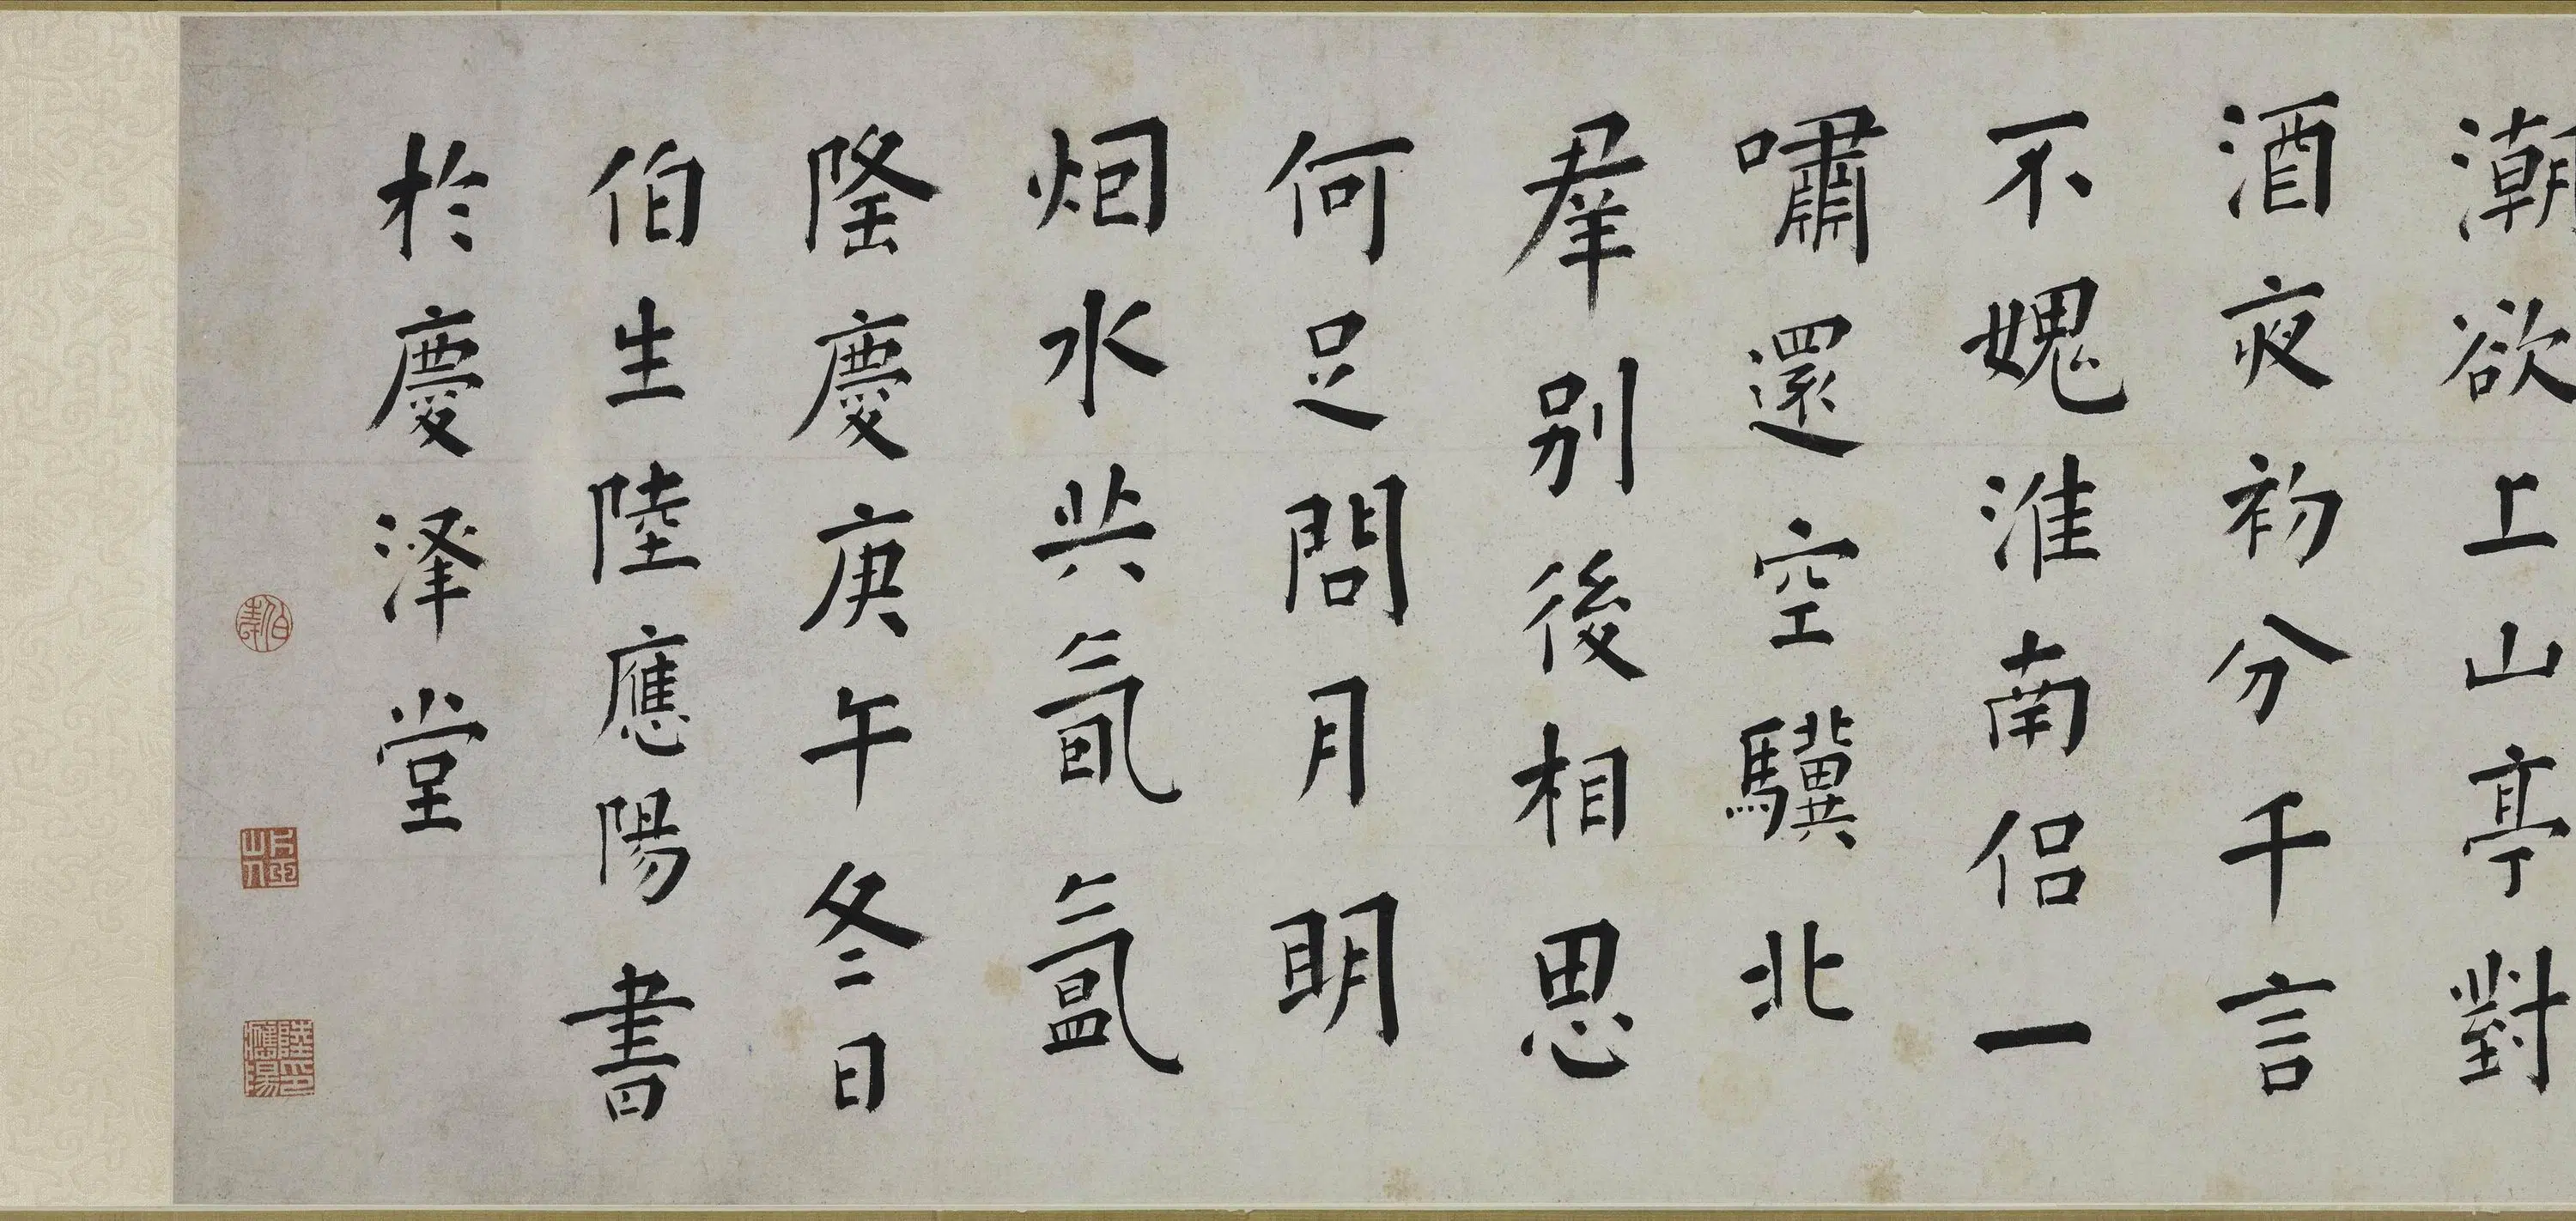 潮欲上山亭對
酒夜初分千言
不媿淮南侣一
嘯還空驥北
羣别後相思
何足問月明
烟水共氤氳
隆慶庚午冬日
伯生陸應陽書
於慶澤堂
伯生
陸應陽印